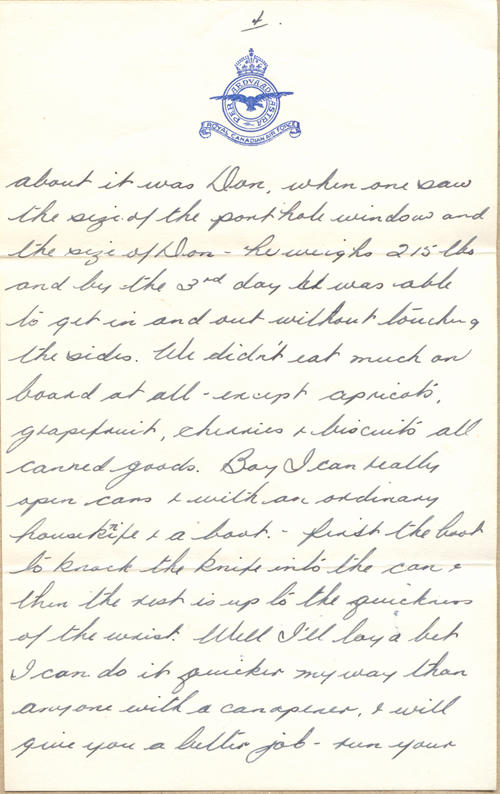 4.
PER ARDUA AD ASTRA
ROYAL CANADIAN AIR FORCE
about it was Don, when one saw
the size of the port hole window and
the size of Don - he weighs 215 lbs
and by the 3rd day he was able
to get in and out without touching
the sides. We didn't eat much on
board at all - except apricots,
grapefruit, cherries & biscuits all
canned goods. Boy I can really
open cans & with an ordinary
house knife & a boot. - first the boot
to knock the knife into the can &
then the rest is up to the quickness
of the wrist. Well I'll lay a bet
I can do it quicker my way than
anyone with a canopener, & will
give you a better job - run your